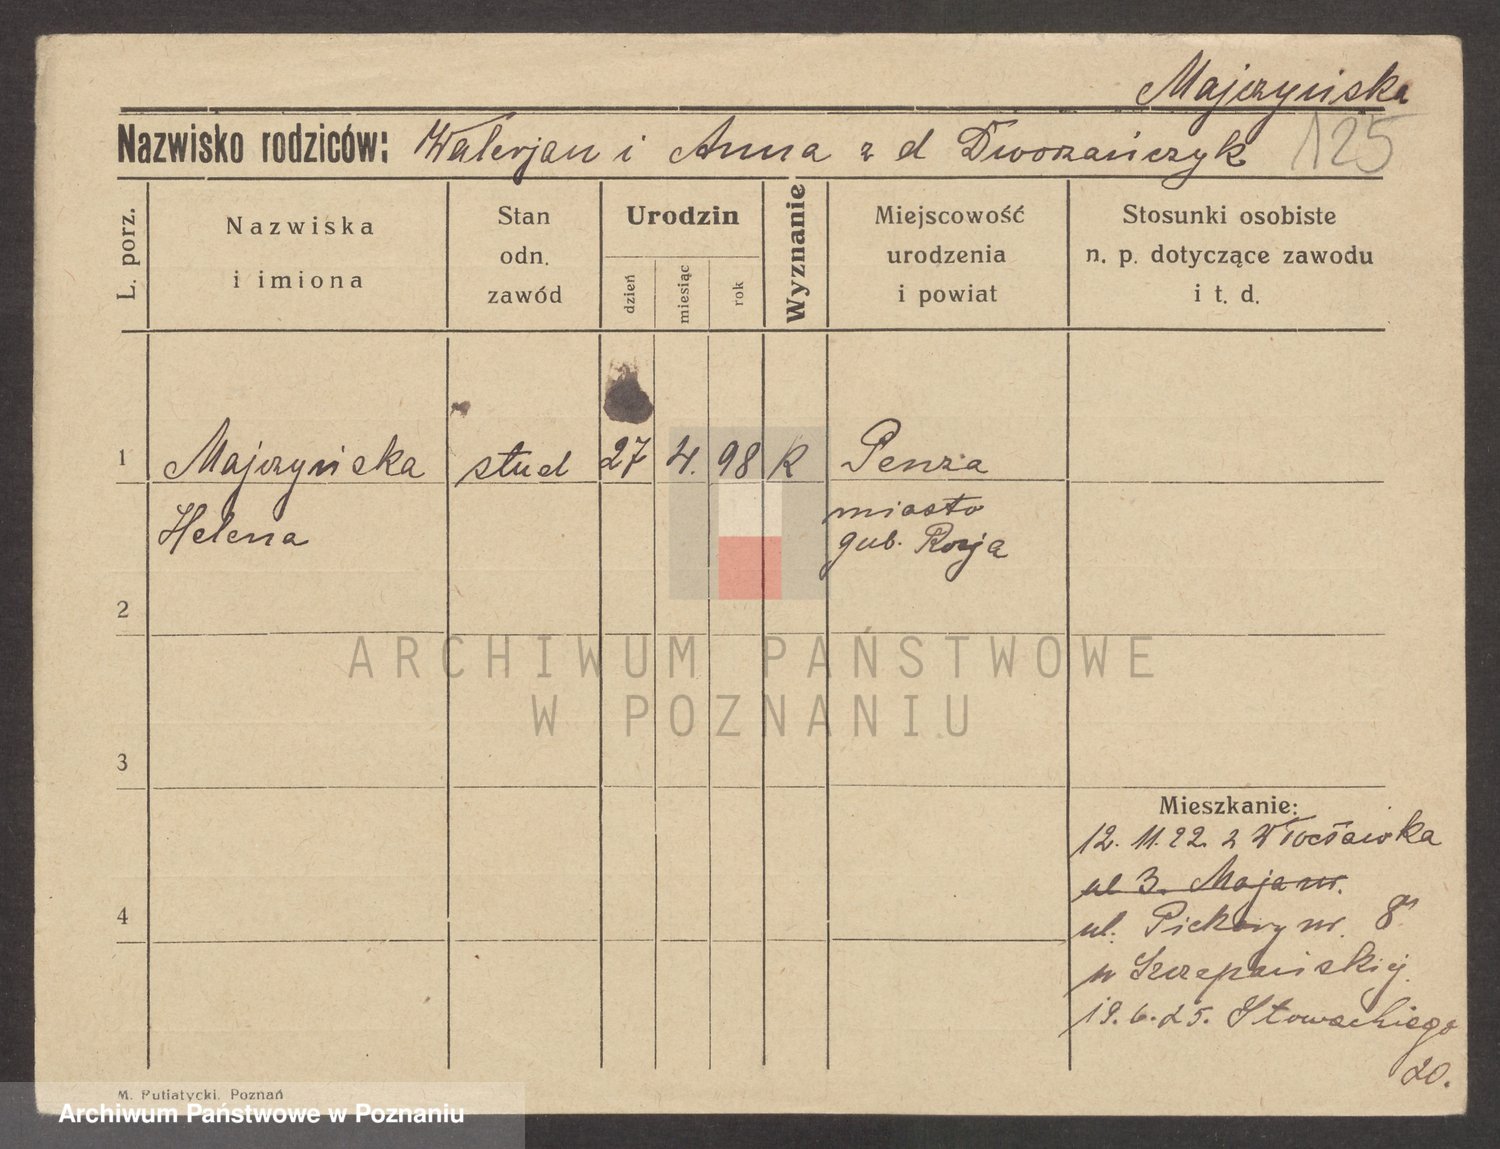 Majczyńska
Nazwisko rodziców: Walerjan i Anna z d Dworzańczyk 125
L. porz.
Nazwiska
i imiona
Stan
odn.
zawód
Urodzin
dzień
miesiąc
rok
Wyznanie
Miejscowość
urodzenia
i powiat
Stosunki osobiste
n. p. dotyczące zawodu
i t. d.
1 Majczyńska stud 27 4. 98 k Penza
Helena
miasto
gub. Rosja
2
ARCHIWUM PAŃSTWOWE
W POZNANIU
3
Mieszkanie:
12. 11. 22. z Włocławka
ul 3. Maja nr.
4
ul. Piekary nr. 8
u Szczepańskiej
19. 6. 25. Słowackiego
20.
M. Putiatycki, Poznań
Archiwum Państwowe w Poznaniu